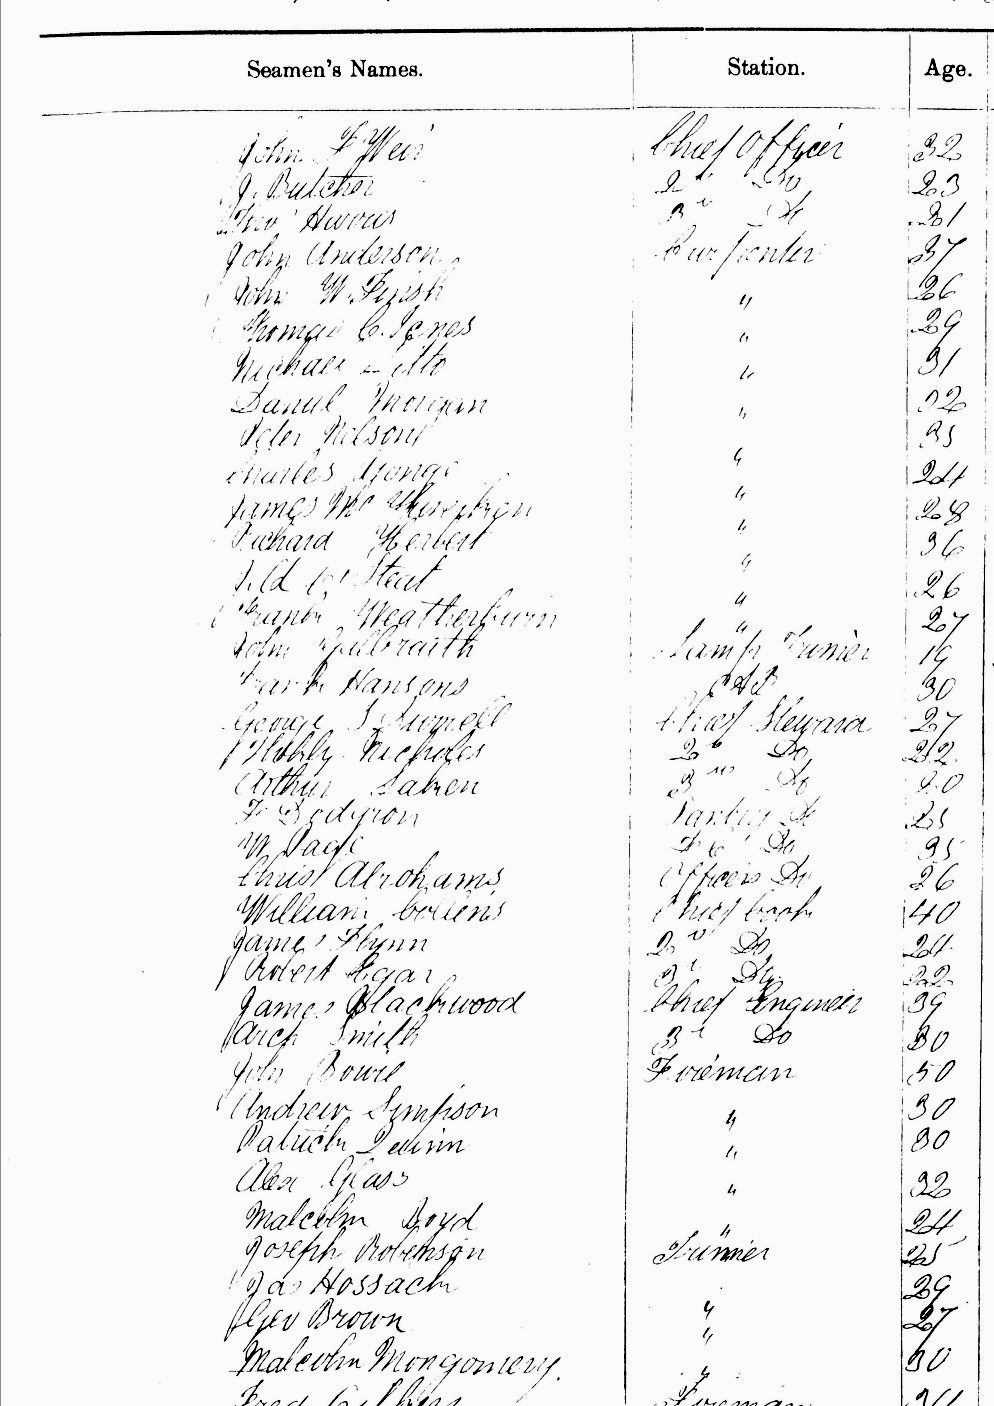 Seamen's Names. Station. Age.
John F Weir Chief Officer 32
J. Butcher 2" Do 23
31
John Anderson Carpenter 37
John W. Finish " 26
Thomas C. Jones " 29
Michael " 31
Daniel Morgan " 32
Peter Nilson " 35
Charles " 24
James Mc " 28
Richard Herbert " 36
Steat " 26
Frank Weatherburn " 27
John Galbraith Lamp Trimer 19
Hansons 30
George Chief Steward 27
Nicholes 2" Do 22
Arthur 3rd Do 20
25
W. Page Do 35
Christ Abrahams Officers Do 26
William Collens Chief Cook 40
James Flynn 2" Do 24
Robert Egar 3" Do 22
James Blackwood Chief Engineer 39
Arch Smith 3" Do 30
John Bowie Fireman 50
Andrew Simpson " 30
Patrick Quinn " 30
Alex Glass " 32
Malcolm Boyd " 24
Joseph Robenson Trimer 25
Jas Hossack 29
Geo Brown " 27
Malcolm Montgomery. " 30
Fred Fireman